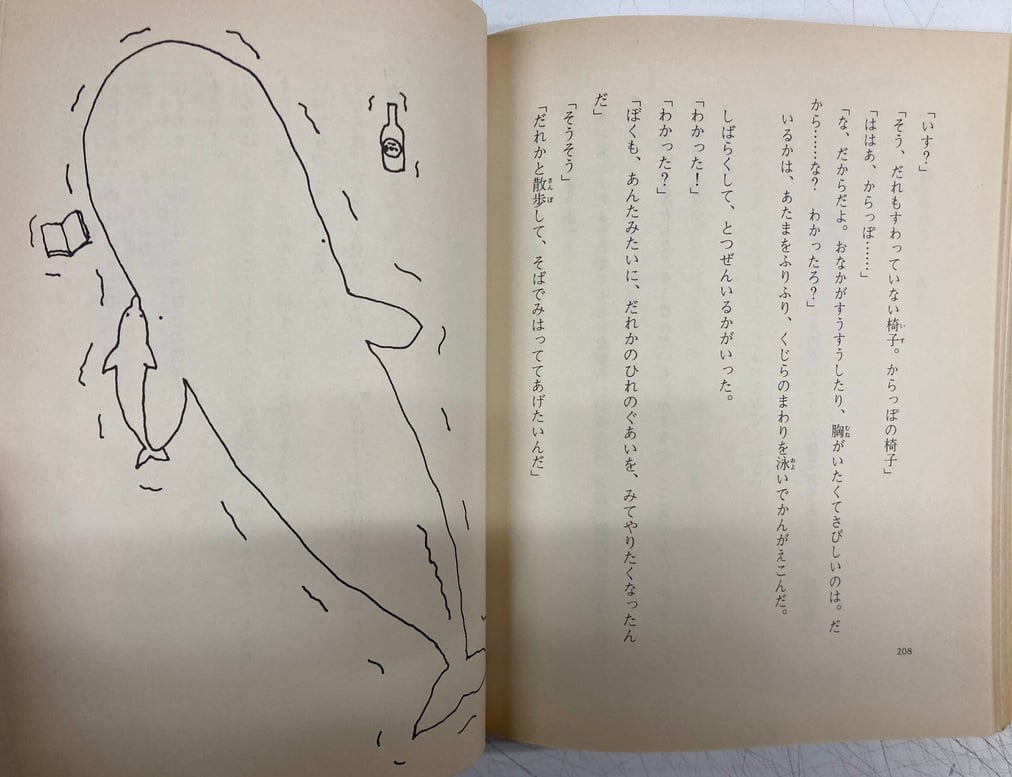 「いす？」
「そう、だれもすわっていない椅子。からっぽの椅子」
「ははあ、からっぽ……」
「な、だからだよ。おなかがすうすうしたり、胸がいたくてさびしいのは。だ
から……な？　わかったろ？」
いるかは、あたまをふりふり、くじらのまわりを泳いでかんがえこんだ。
しばらくして、とつぜんいるかがいった。
「わかった！」
「わかった？」
「ぼくも、あんたみたいに、だれかのひれのぐあいを、みてやりたくなったん
だ」
「そうそう」
「だれかと散歩して、そばでみはっててあげたいんだ」
208